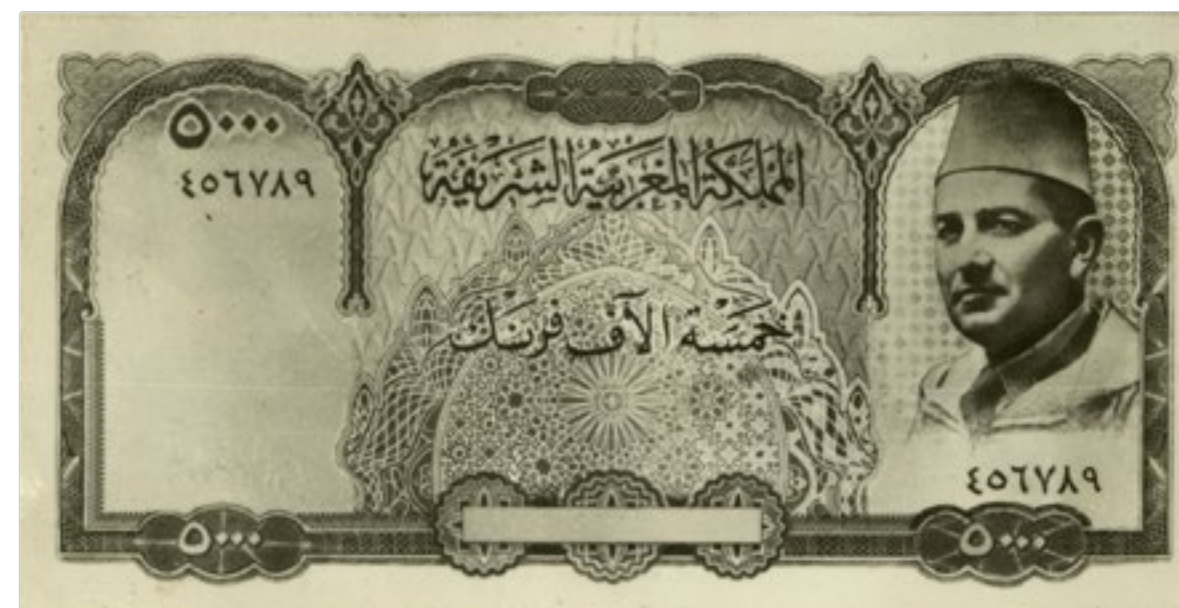 ٥٠٠٠
٤٥٦٧٨٩
المملكة المغربية الشريفة
خمسة آلاف فرنك
٤٥٦٧٨٩
٥٠٠٠
٥٠٠٠